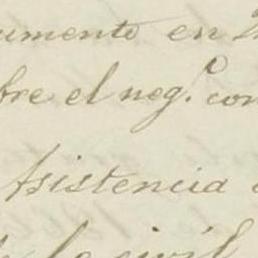 umento en
bre el neg.º con
Asistencia
civil